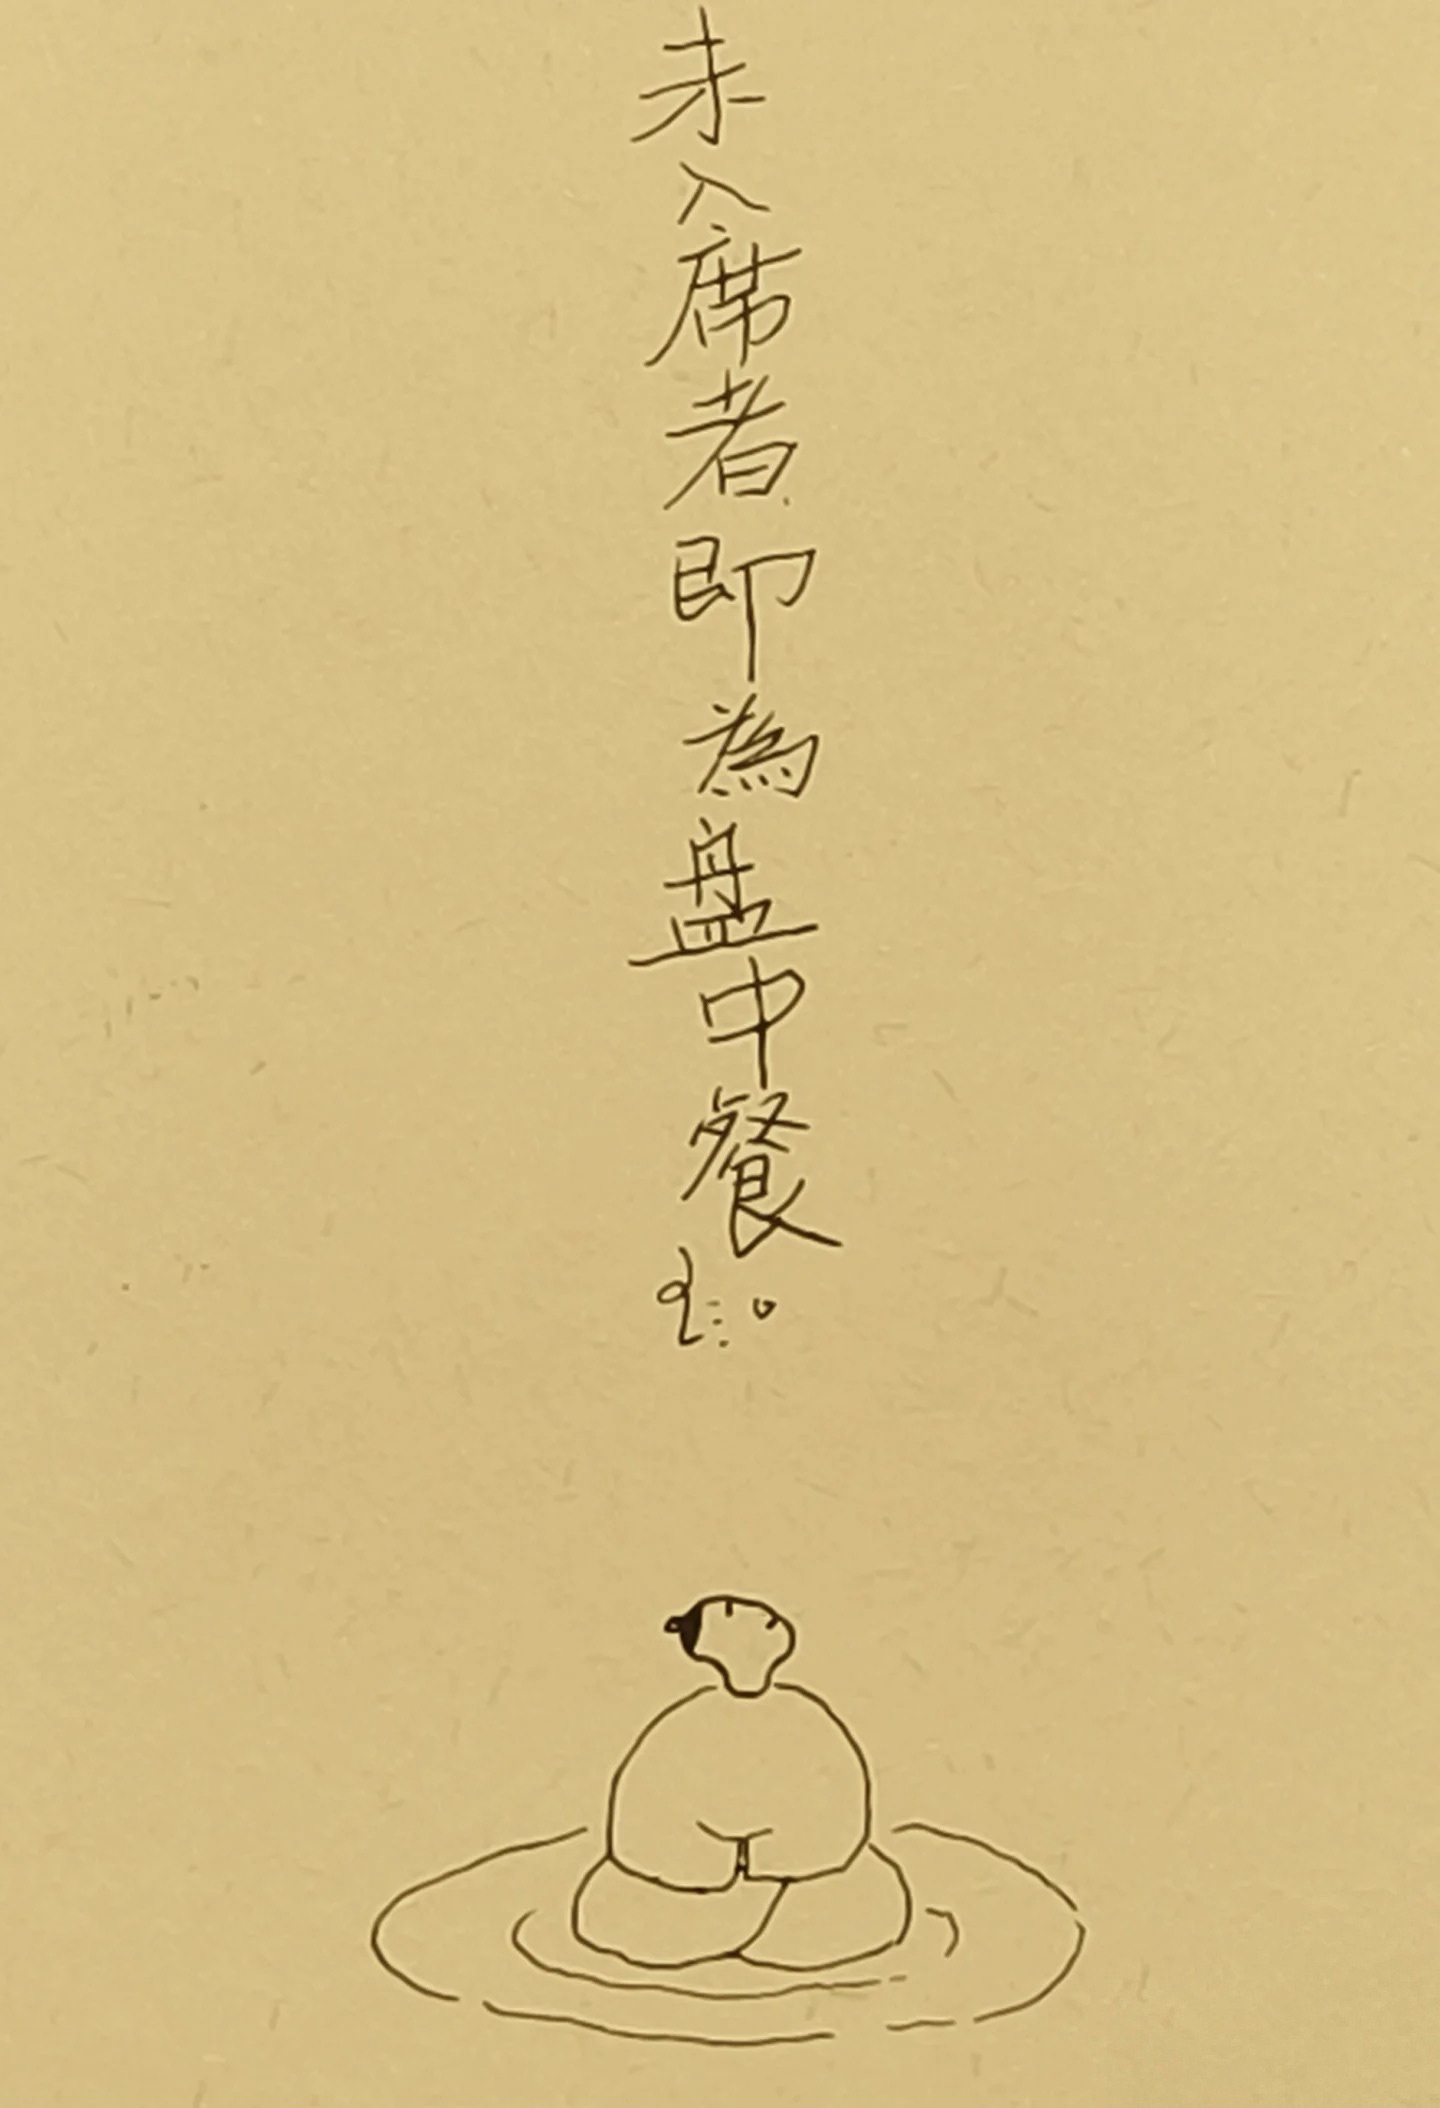 未入席者即為盘中餐